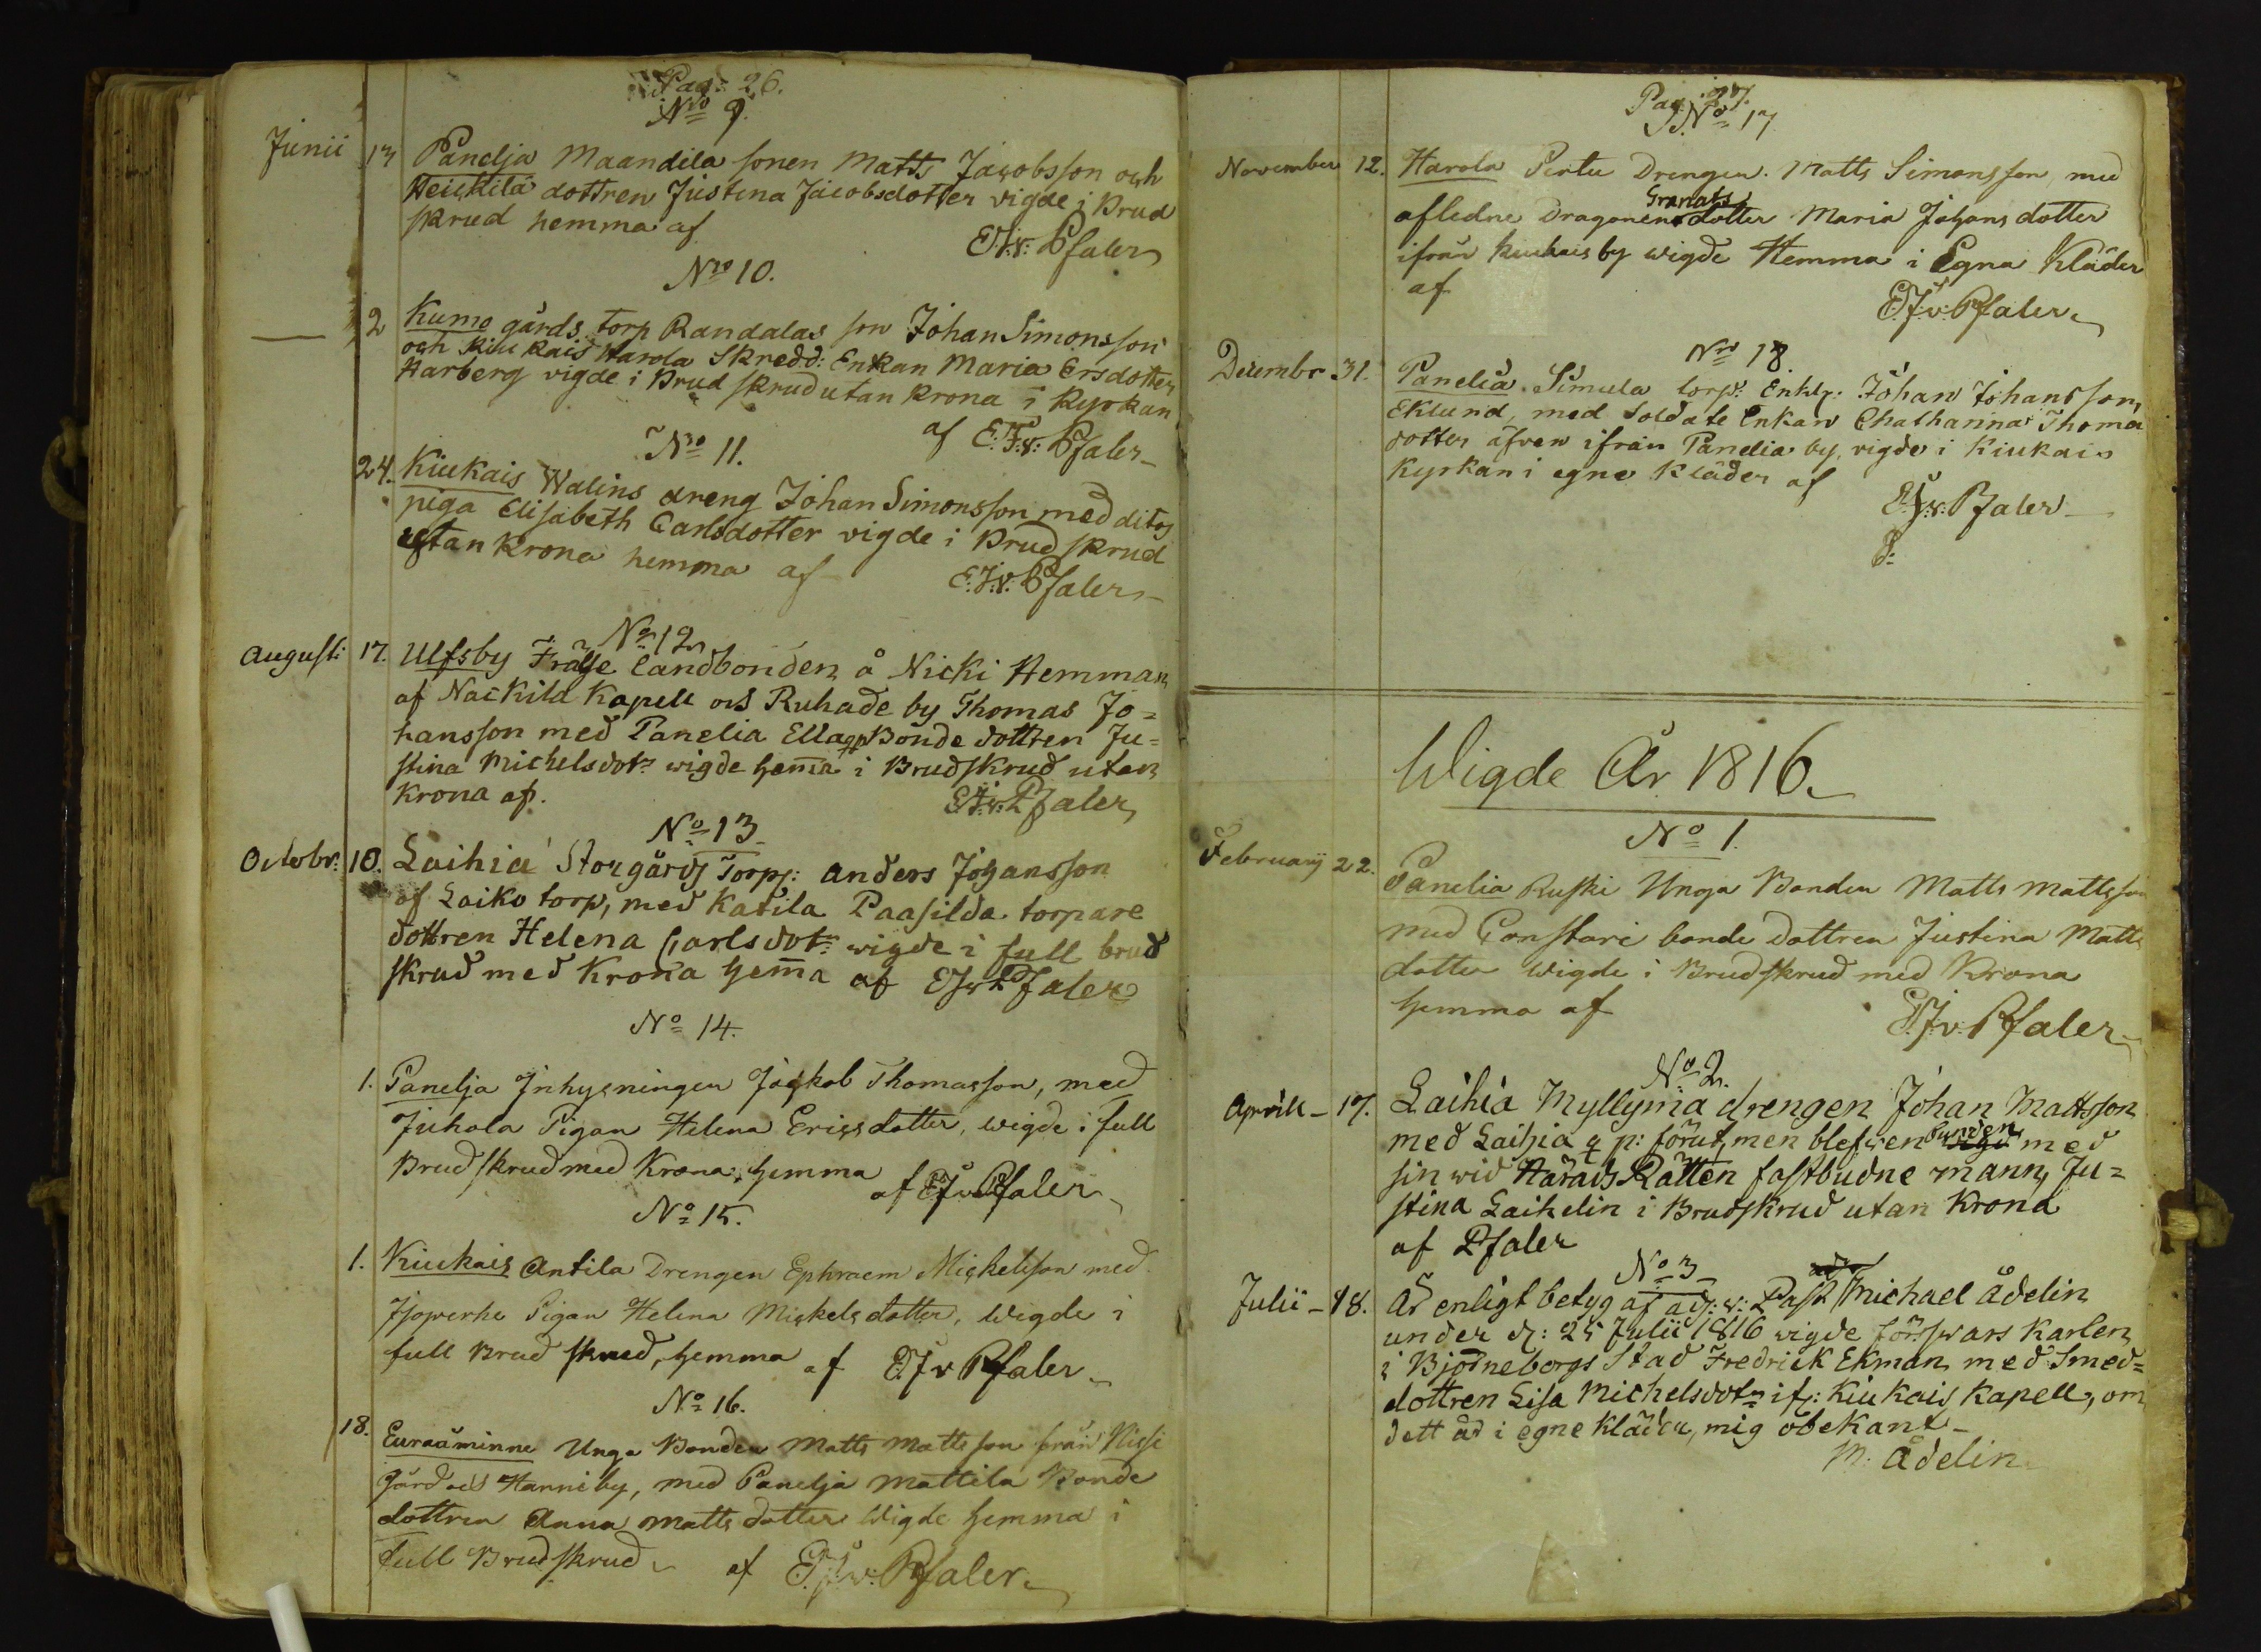 Pag: 26.
Nro 9.
Junii 13 Panelja Maandila sonen Matts Jacobsson och
Heickilä dottren Justina Jacobsdotter vigde i Brud
skrud hemma af
E.J.v: Pfaler
Nro 10.
2 Kumo gårds torp Randalas son Johan Simonsson
och Kiukais Harola Skredd: Enkan Maria Ersdotter
Harberg vigde i Brud skrud utan krona i Kyrkan
af E.J.v: Pfaler
Nro 11.
24. Kiukais Walins dreng Johan Simonsson med ditos
piga Elisabeth Carlsdotter vigde i Brud skrud
utan Krona hemma af
E.J.v. Pfaler
No 12
Augusti 17. Ulfsby Frälse Landbonden å Nicki Hemman
af Nackila Kapell och Ruhade by Thomas Jo=
hansson med Panelia Ella Bonde dottren Ju=
stina Michelsdotr wigde hema i Brudskrud utan
Krona af.
E.J.v: Pfaler
No 13
Octobr: 10. Laihia Storgårds Torp: Anders Johansson
af Laiko torp, med Katila Paasilda torpare
dottren Helena Carlsdotr wigde i full brud
skrud med Krona hema af EJv Pfaler
No 14.
1. Panelja Inhysningen Jackob Thomasson, med
Juhola Pigan Helena Ericsdotter, wigde i full
Brudskrud med Krona, hemma
af EJv Pfaler
No 15.
1. Kiukais Antila Drengen Ephraem Mickelsson med
Pigan Helena Mickelsdotter, Wigde i
full Brud skrud, hemma af EJv Pfaler
No 16.
18. Euraåminne Unga Bonden Matts Mattsson från Nissi
gård och Hanni by, med Panelja Mattila Bonde
dottren Anna Mattsdotter Wigde hemma i
full Brudskrud af E.J.v: Pfaler
Pag: 27.
No 17
November 12. Harola Pertu Drengen Matts Simonsson, med
Granats
afledne Dragonens dotter Maria Johansdotter
ifrån Kiukais by wigde Hemma i Egna Kläder
af
EJv: Pfaler
Nro 18
Decembr 31. Panelia Simula torp: Enkl: Johan Johansson
Eklund, med Soldate Enkan Chatharina Thoma
dotter äfven ifrån Panelia by, vigde i Kiukais
Kyrkan i egne Kläder af
EJv: Pfaler
Wigde År 1816.
No 1.
Februarij 22. Panelia Ruski Unga Bonden Matts Mattsson
med Constari bonde dottren Justina Matts
dotter Wigde i Brudskrud med Krona
hemma af
EJv: Pfaler
No 2.
Aprill - 17. Laihia Myllymä drengen Johan Mattsson
med Laihia q p: förut, men blefwen bunden med
sin wid Härads Rätten fastbudne mann, Ju=
stina Laihelin i Brudskrud utan Krona
af Pfaler
No 3
Julii - 18. År enligt betyg af adj: v: Past Michael Ådelin
under d: 25 Julii 1816 wigde förswars Karlen
i Björneborgs Stad Fredrick Ekman med Smed=
dottren Lisa Michelsdotr if: Kiukais Kapell, om
dett är i egne Kläder, mig obekant
M: Ådelin